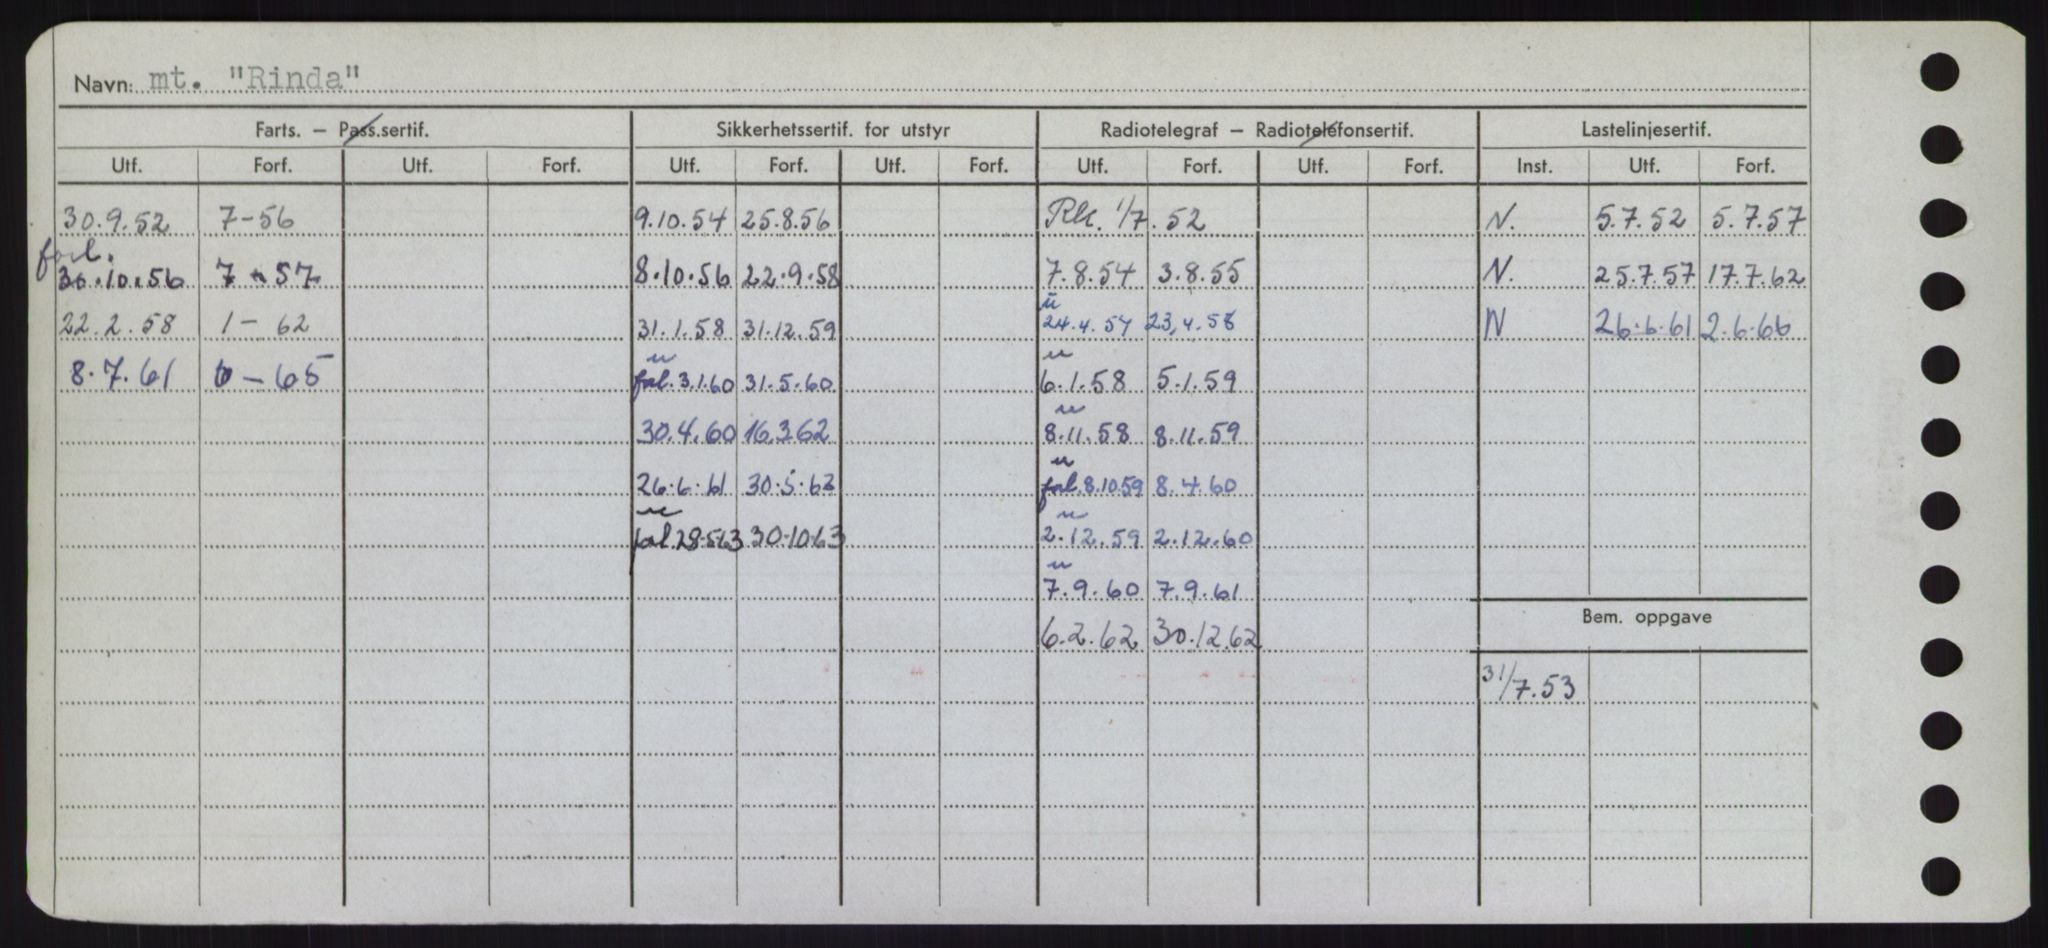 Navn: mt. "Rinda"
Farts. – Pass.sertif. Sikkerhetssertif. for utstyr Radiotelegraf – Radiotelefonsertif. Lastelinjesertif.
Utf. Forf. Utf. Forf. Utf. Forf. Utf. Forf. Utf. Forf. Utf. Forf. Inst. Utf. Forf.
30.9.52 7-56 9.10.54 25.8.56 Rk. 1/7.52 N. 5.7.52 5.7.57
forl.
30.10.56 7-57 8.10.56 22.9.58 7.8.54 3.8.55 N. 25.7.57 17.7.62
u
22.2.58 1-62 31.1.58 31.12.59 24.4.57 23.4.58 N 26.6.61 2.6.66
u u
8.7.61 6-65 forl. 3.1.60 31.5.60 6.1.58 5.1.59
u
30.4.60 16.3.62 8.11.58 8.11.59
u
26.6.61 30.5.63 forl. 8.10.59 8.4.60
u u
forl. 28.5.63 30.10.63 2.12.59 2.12.60
u
7.9.60 7.9.61
Bem. oppgave
6.2.62 30.12.62
31/7.53